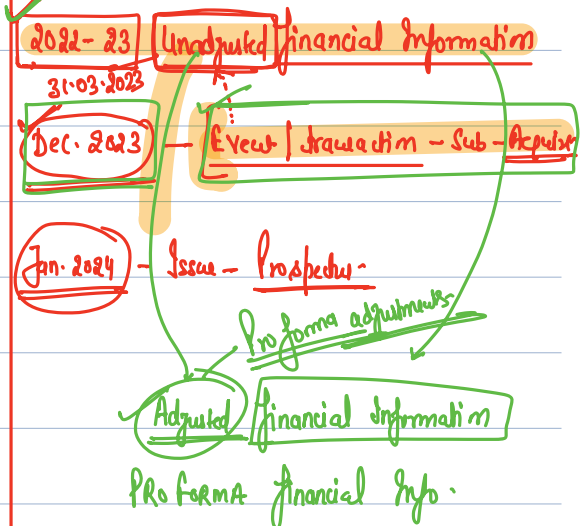 2022-23 Unadjusted Financial Information
31.03.2023
Dec. 2023 - Event | Transaction - Sub - Acquire
Jan. 2024 - Issue - Prospectus
Pro forma adjustments
Adjusted Financial Information
PRO FORMA Financial Info.